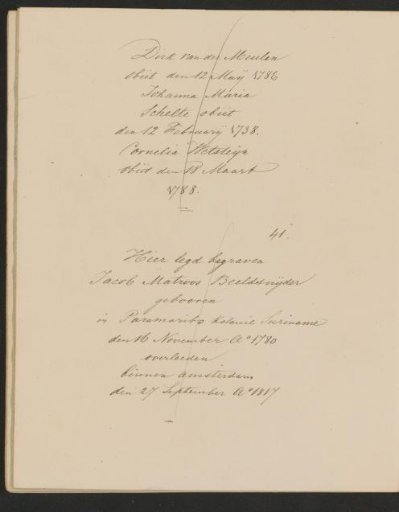 Dirk van der Meulen
obiit den 12 Maij 1786
Johanna Maria
Schelte obiit
den 12 Februarij 1738.
Cornelia Wetsteijn
obiit den 18 Maart
1788.
41.
Hier legd begraven
Jacob Matroos Beeldsnijder
gebooren
in Paramaribo Kolonie Suriname
den 16 November Aº 1780
overleeden
binnen Amsterdam
den 27 September Aº 1817